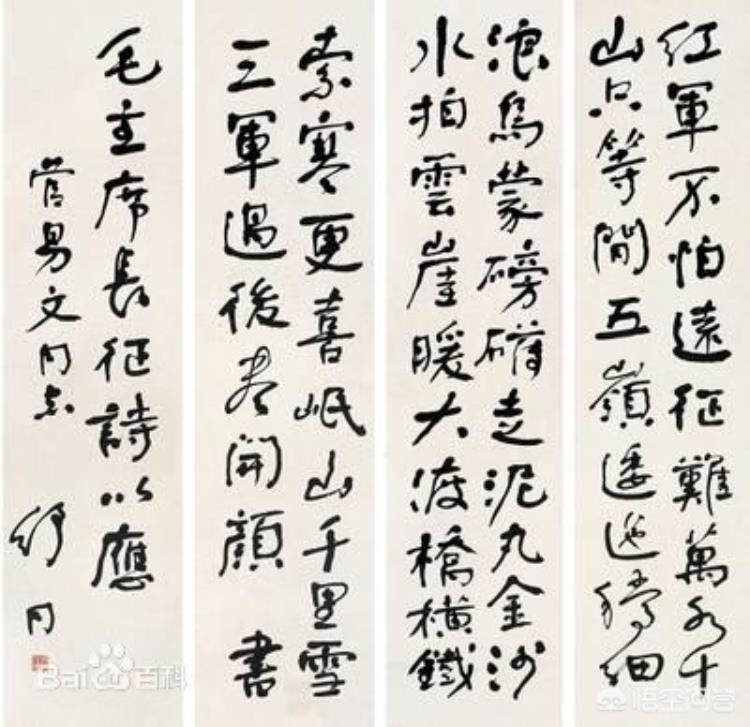 紅軍不怕遠征難萬水千
山只等閒五嶺逶迤騰細
浪烏蒙磅礴走泥丸金沙
水拍雲崖暖大渡橋橫鐵
索寒更喜岷山千里雪
三軍過後盡開顏 書
毛主席長征詩以應
管易文同志
舒同
Bai百科
悟空问答